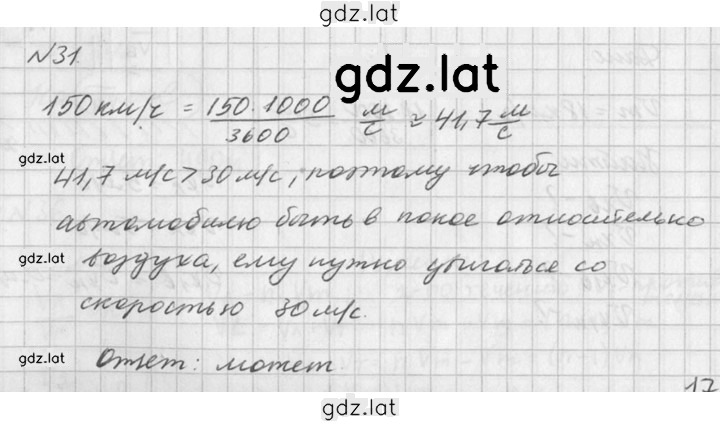 gdz.lat
№31
gdz.lat
150км/ч = 150·1000/3600 м/с ≈ 41,7 м/с
gdz.lat
41,7 м/с > 30 м/с, поэтому чтобы
автомобилю быть в покое относительно
gdz.lat
воздуха, ему нужно двигаться со
скоростью 30 м/с.
gdz.lat
Ответ: может
17
gdz.lat